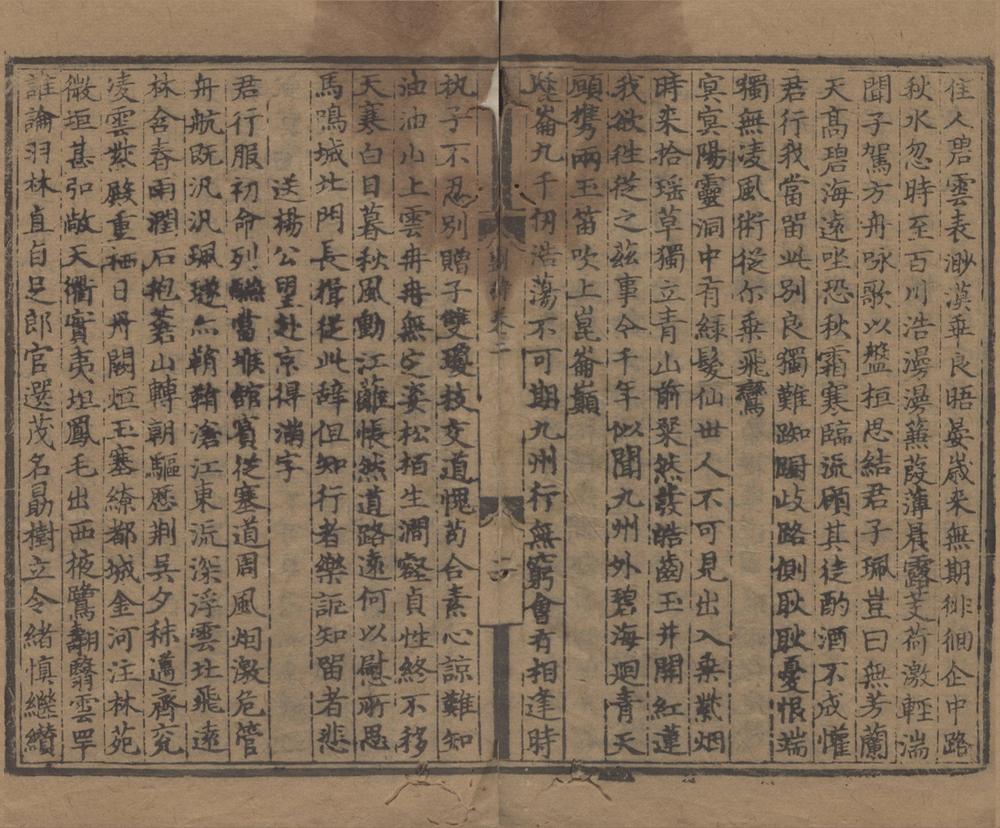 佳人碧雲表渺漠乖良晤晏歲来無期徘徊企中路
秋水忽時至百川浩漫漫蒹葭薄晨露芰荷激輕湍
聞子駕方舟咏歌以盤桓思結君子珮豈曰無芳蘭
天高碧海遠坐恐秋霜寒臨流顧其徒酌酒不成懽
君行我當留此別良獨難踟躕歧路側耿耿憂恨端
獨無凌風術從尓乗飛鸞
冥冥陽靈洞中有緑髮仙世人不可見出入乗紫烟
時来拾瑶草獨立青山前粲然發皓齒玉井開紅蓮
我欲徃從之茲事今千年似聞九州外碧海廻青天
顧携兩玉笛吹上崑崙巔
崑崙九千仞浩蕩不可期九州行無窮會有相逢時
執子不忍別贈子雙瓊枝交道愧苟合素心諒難知
油油山上雲冉冉無定姿松栢生澗壑貞性終不移
天寒白日暮秋風動江蘺悵然道路遠何以慰所思
馬鳴城北門長揖從此辞但知行者樂詎知留者悲
送楊公望赴京得滿字
君行服初命列聮當堠館賓從塞道周風烟激危管
舟航既汎汎珮璲亦鞙鞙滄江東流深浮雲北飛遠
林含春雨潤石抱蒼山轉朝驅歷荆呉夕秣邁齊兖
凌雲紫殿重栖日丹闕烜玉塞繚都城金河注林苑
微垣甚弘敞天衢實夷坦鳳毛出西掖鷺翿翳雲罕
誰論羽林直自足郎官選茂名勗樹立令緒慎繼纘